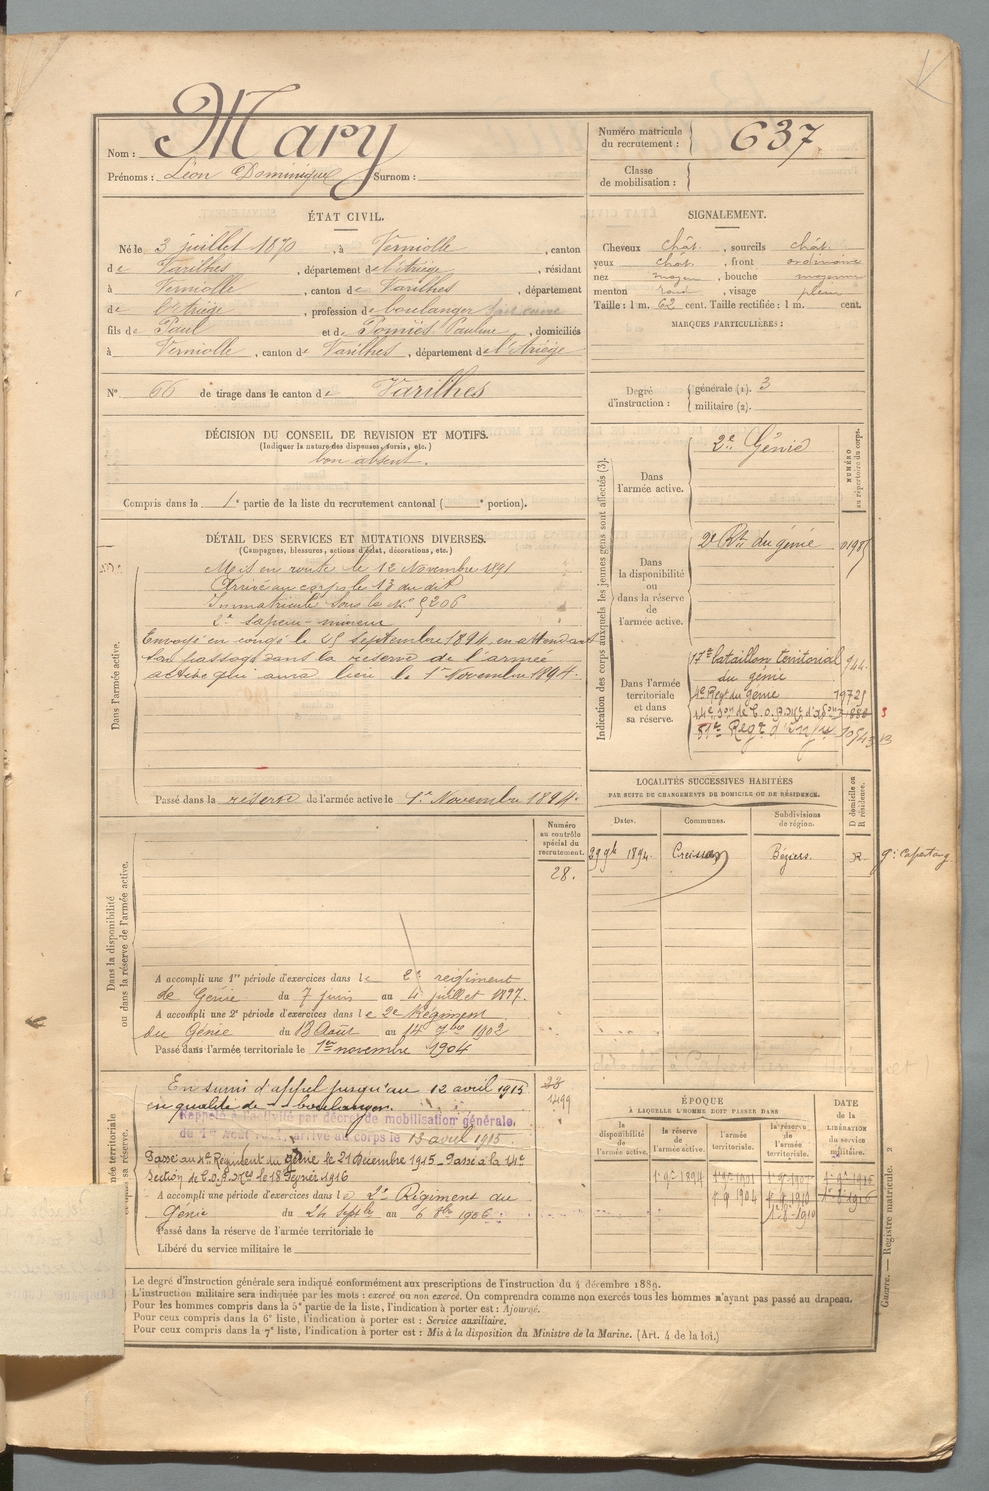 Nom : Mary
Prénoms : Léon Dominique Surnom :
Numéro matricule du recrutement : 637.
Classe de mobilisation :
ÉTAT CIVIL.
Né le 3 juillet 1870, à Verniolle, canton
de Varilhes, département de l'Ariège, résidant
à Verniolle, canton de Varilhes, département
de l'Ariège, profession de boulanger
fils de Paul et de Pomiès Pauline, domiciliés
à Verniolle, canton de Varilhes, département de l'Ariège
N° 66 de tirage dans le canton de Varilhes
SIGNALEMENT.
Cheveux chât. , sourcils chât.
yeux chât. , front ordinaire
nez moyen , bouche moyenne
menton rond , visage plein
Taille : 1 m. 62 cent. Taille rectifiée : 1 m. cent.
MARQUES PARTICULIÈRES :
Degré d'instruction :
générale (1). 3
militaire (2).
DÉCISION DU CONSEIL DE REVISION ET MOTIFS.
(Indiquer la nature des dispenses, sursis, etc.)
bon absent.
Compris dans la 1e partie de la liste du recrutement cantonal ( e portion).
DÉTAIL DES SERVICES ET MUTATIONS DIVERSES.
(Campagnes, blessures, actions d'éclat, décorations, etc.)
Dans l'armée active.
Mis en route le 12 Novembre 1891
Arrivé au corps le 13 du dit
Immatriculé sous le N° 5206
2e sapeur-mineur
Envoyé en congé le 25 septembre 1894, en attendant
son passage dans la réserve de l'armée
active qui aura lieu le 1er Novembre 1894.
Passé dans la réserve de l'armée active le 1er Novembre 1894.
Indication des corps auxquels les jeunes gens sont affectés (3).
NUMÉRO au répertoire du corps.
Dans l'armée active.
2e Génie
Dans la disponibilité ou dans la réserve de l'armée active.
2e Rt du génie 0198
Dans l'armée territoriale et dans sa réserve.
17e bataillon territorial du génie 944
4e Regt du Génie 19725
LOCALITÉS SUCCESSIVES HABITÉES
PAR SUITE DE CHANGEMENTS DE DOMICILE OU DE RÉSIDENCE.
Dates. Communes. Subdivisions de région. D domicile ou R résidence.
29 9bre 1894. Creissan Béziers. R. Gie Capestang
Dans la disponibilité ou dans la réserve de l'armée active.
Numéro au contrôle spécial du recrutement.
28.
A accompli une 1re période d'exercices dans le 2e régiment
de Génie du 7 juin au 4 juillet 1897.
A accompli une 2e période d'exercices dans le 2e Régiment
du Génie du 18 Août au 14 7bre 1902
Passé dans l'armée territoriale le 1er novembre 1904
En sursis d'appel jusqu'au 12 avril 1915
en qualité de boulanger.
Rappelé à l'activité par décret de mobilisation générale,
du 1er Août 1914, arrivé au corps le 13 avril 1915.
Passé au 4e Régiment du génie le 21 Décembre 1915 - Passé à la 14e
Section de C.O.A. Mres le 18 Février 1916
A accompli une période d'exercices dans le 2e Régiment du
Génie du 24 septbre au 6 8bre 1906.
Passé dans la réserve de l'armée territoriale le
Libéré du service militaire le
28
1499
ÉPOQUE
À LAQUELLE L'HOMME DOIT PASSER DANS
DATE de la LIBÉRATION du service militaire.
la disponibilité de l'armée active. la réserve de l'armée active. l'armée territoriale. la réserve de l'armée territoriale.
1er 9bre 1894
1er 9 1904 1er 9 1910
Guerre. — Registre matricule. 2
Le degré d'instruction générale sera indiqué conformément aux prescriptions de l'instruction du 4 décembre 1889.
L'instruction militaire sera indiquée par les mots : exercé ou non exercé. On comprendra comme non exercés tous les hommes n'ayant pas passé au drapeau.
Pour les hommes compris dans la 5e partie de la liste, l'indication à porter est : Ajourné.
Pour ceux compris dans la 6e liste, l'indication à porter est : Service auxiliaire.
Pour ceux compris dans la 7e liste, l'indication à porter est : Mis à la disposition du Ministre de la Marine. (Art. 4 de la loi.)